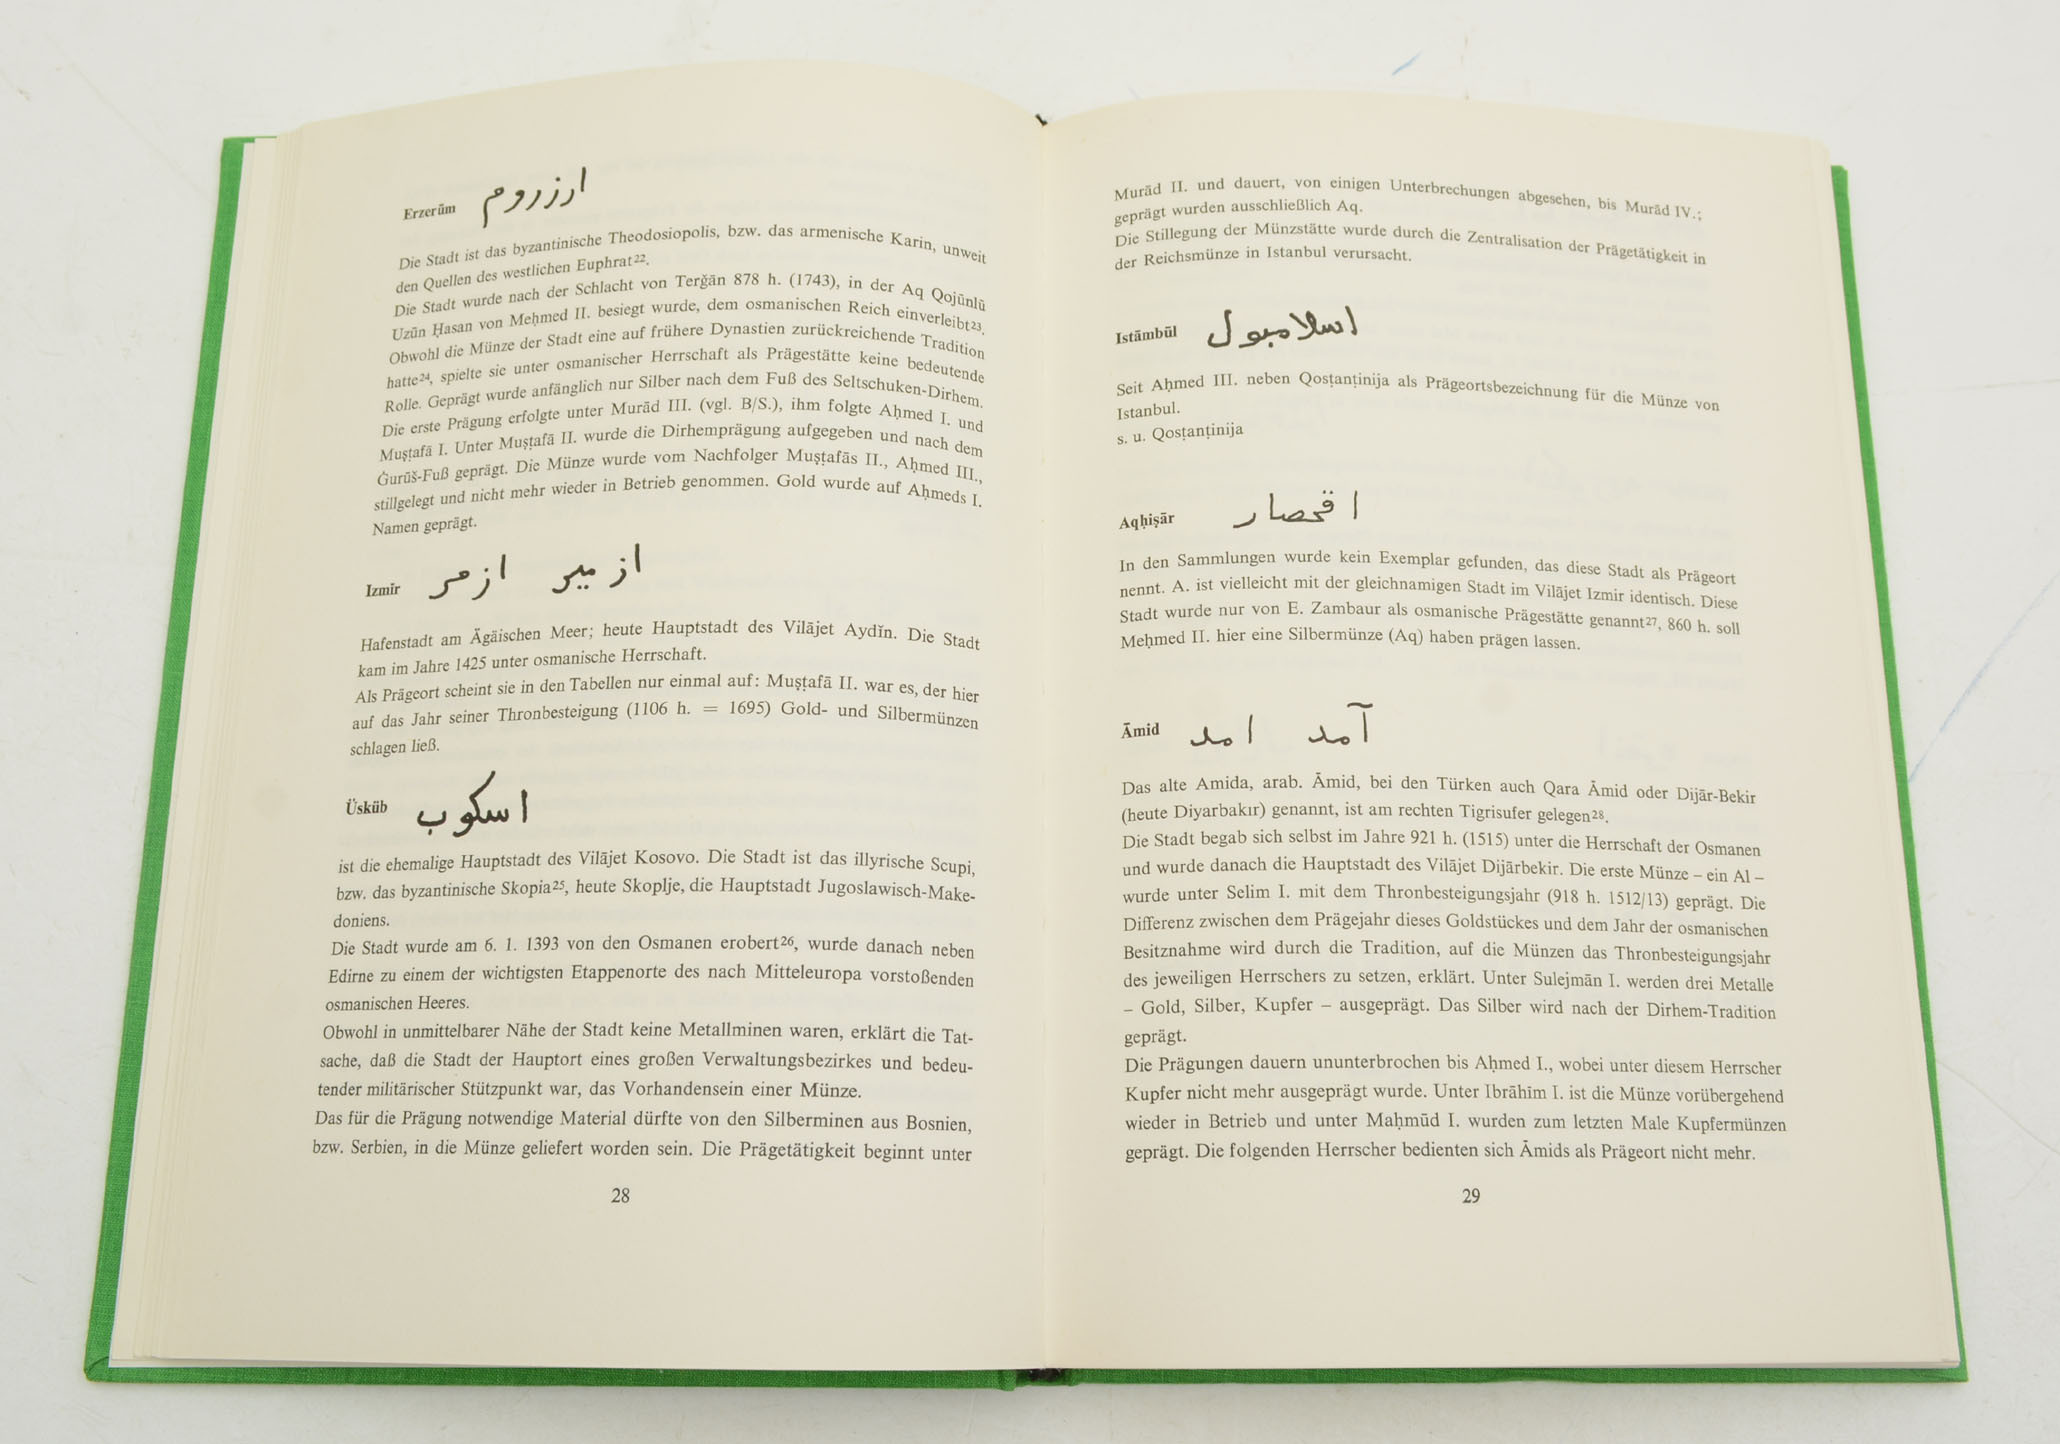 Erzerūm ارزروم
Die Stadt ist das byzantinische Theodosiopolis, bzw. das armenische Karin, unweit
den Quellen des westlichen Euphrat22.
Die Stadt wurde nach der Schlacht von Terǧān 878 h. (1743), in der Aq Qojūnlū
Uzūn Ḥasan von Meḥmed II. besiegt wurde, dem osmanischen Reich einverleibt23.
Obwohl die Münze der Stadt eine auf frühere Dynastien zurückreichende Tradition
hatte24, spielte sie unter osmanischer Herrschaft als Prägestätte keine bedeutende
Rolle. Geprägt wurde anfänglich nur Silber nach dem Fuß des Seltschuken-Dirhem.
Die erste Prägung erfolgte unter Murād III. (vgl. B/S.), ihm folgte Aḥmed I. und
Muṣṭafā I. Unter Muṣṭafā II. wurde die Dirhemprägung aufgegeben und nach dem
Ġurūš-Fuß geprägt. Die Münze wurde vom Nachfolger Muṣṭafās II., Aḥmed III.,
stillgelegt und nicht mehr wieder in Betrieb genommen. Gold wurde auf Aḥmeds I.
Namen geprägt.
Izmīr ازمر ازمير
Hafenstadt am Ägäischen Meer; heute Hauptstadt des Vilājet Aydĭn. Die Stadt
kam im Jahre 1425 unter osmanische Herrschaft.
Als Prägeort scheint sie in den Tabellen nur einmal auf: Muṣṭafā II. war es, der hier
auf das Jahr seiner Thronbesteigung (1106 h. = 1695) Gold- und Silbermünzen
schlagen ließ.
Üsküb اسكوب
ist die ehemalige Hauptstadt des Vilājet Kosovo. Die Stadt ist das illyrische Scupi,
bzw. das byzantinische Skopia25, heute Skoplje, die Hauptstadt Jugoslawisch-Make-
doniens.
Die Stadt wurde am 6. 1. 1393 von den Osmanen erobert26, wurde danach neben
Edirne zu einem der wichtigsten Etappenorte des nach Mitteleuropa vorstoßenden
osmanischen Heeres.
Obwohl in unmittelbarer Nähe der Stadt keine Metallminen waren, erklärt die Tat-
sache, daß die Stadt der Hauptort eines großen Verwaltungsbezirkes und bedeu-
tender militärischer Stützpunkt war, das Vorhandensein einer Münze.
Das für die Prägung notwendige Material dürfte von den Silberminen aus Bosnien,
bzw. Serbien, in die Münze geliefert worden sein. Die Prägetätigkeit beginnt unter
28
Murād II. und dauert, von einigen Unterbrechungen abgesehen, bis Murād IV.;
geprägt wurden ausschließlich Aq.
Die Stillegung der Münzstätte wurde durch die Zentralisation der Prägetätigkeit in
der Reichsmünze in Istanbul verursacht.
Istāmbūl اسلامبول
Seit Aḥmed III. neben Qosṭanṭinija als Prägeortsbezeichnung für die Münze von
Istanbul.
s. u. Qosṭanṭinija
Aqḥiṣār اقحصار
In den Sammlungen wurde kein Exemplar gefunden, das diese Stadt als Prägeort
nennt. A. ist vielleicht mit der gleichnamigen Stadt im Vilājet Izmir identisch. Diese
Stadt wurde nur von E. Zambaur als osmanische Prägestätte genannt27, 860 h. soll
Meḥmed II. hier eine Silbermünze (Aq) haben prägen lassen.
Āmid امد آمد
Das alte Amida, arab. Āmid, bei den Türken auch Qara Āmid oder Dijār-Bekir
(heute Diyarbakır) genannt, ist am rechten Tigrisufer gelegen28.
Die Stadt begab sich selbst im Jahre 921 h. (1515) unter die Herrschaft der Osmanen
und wurde danach die Hauptstadt des Vilājet Dijārbekir. Die erste Münze – ein Al –
wurde unter Selim I. mit dem Thronbesteigungsjahr (918 h. 1512/13) geprägt. Die
Differenz zwischen dem Prägejahr dieses Goldstückes und dem Jahr der osmanischen
Besitznahme wird durch die Tradition, auf die Münzen das Thronbesteigungsjahr
des jeweiligen Herrschers zu setzen, erklärt. Unter Sulejmān I. werden drei Metalle
– Gold, Silber, Kupfer – ausgeprägt. Das Silber wird nach der Dirhem-Tradition
geprägt.
Die Prägungen dauern ununterbrochen bis Aḥmed I., wobei unter diesem Herrscher
Kupfer nicht mehr ausgeprägt wurde. Unter Ibrāhīm I. ist die Münze vorübergehend
wieder in Betrieb und unter Maḥmūd I. wurden zum letzten Male Kupfermünzen
geprägt. Die folgenden Herrscher bedienten sich Āmids als Prägeort nicht mehr.
29